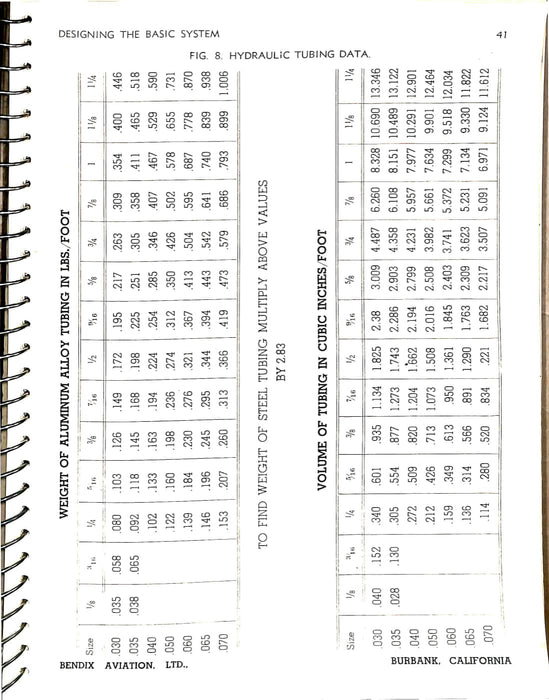 DESIGNING THE BASIC SYSTEM 41
FIG. 8. HYDRAULIC TUBING DATA.
WEIGHT OF ALUMINUM ALLOY TUBING IN LBS./FOOT
Size 1/8 3/16 1/4 5/16 3/8 7/16 1/2 9/16 5/8 3/4 7/8 1 1 1/8 1 1/4
.030 .035 .058 .080 .103 .126 .149 .172 .195 .217 .263 .309 .354 .400 .446
.035 .038 .065 .092 .118 .145 .168 .198 .225 .251 .305 .358 .411 .465 .518
.040 .102 .133 .163 .194 .224 .254 .285 .346 .407 .467 .529 .590
.050 .122 .160 .198 .236 .274 .312 .350 .426 .502 .578 .655 .731
.060 .139 .184 .230 .276 .321 .367 .413 .504 .595 .687 .778 .870
.065 .146 .196 .245 .295 .344 .394 .443 .542 .641 .740 .839 .938
.070 .153 .207 .260 .313 .366 .419 .473 .579 .686 .793 .899 1.006
TO FIND WEIGHT OF STEEL TUBING MULTIPLY ABOVE VALUES
BY 2.83
VOLUME OF TUBING IN CUBIC INCHES/FOOT
Size 1/8 3/16 1/4 5/16 3/8 7/16 1/2 9/16 5/8 3/4 7/8 1 1 1/8 1 1/4
.030 .040 .152 .340 .601 .935 1.134 1.825 2.38 3.009 4.487 6.260 8.328 10.690 13.346
.035 .028 .130 .305 .554 .877 1.273 1.743 2.286 2.903 4.358 6.108 8.151 10.489 13.122
.040 .272 .509 .820 1.204 1.662 2.194 2.799 4.231 5.957 7.977 10.291 12.901
.050 .212 .426 .713 1.073 1.508 2.016 2.508 3.982 5.661 7.634 9.901 12.464
.060 .159 .349 .613 .950 1.361 1.845 2.403 3.741 5.372 7.299 9.518 12.034
.065 .136 .314 .566 .891 1.290 1.763 2.309 3.623 5.231 7.134 9.330 11.822
.070 .114 .280 .520 .834 .221 1.682 2.217 3.507 5.091 6.971 9.124 11.612
BENDIX AVIATION, LTD., BURBANK, CALIFORNIA